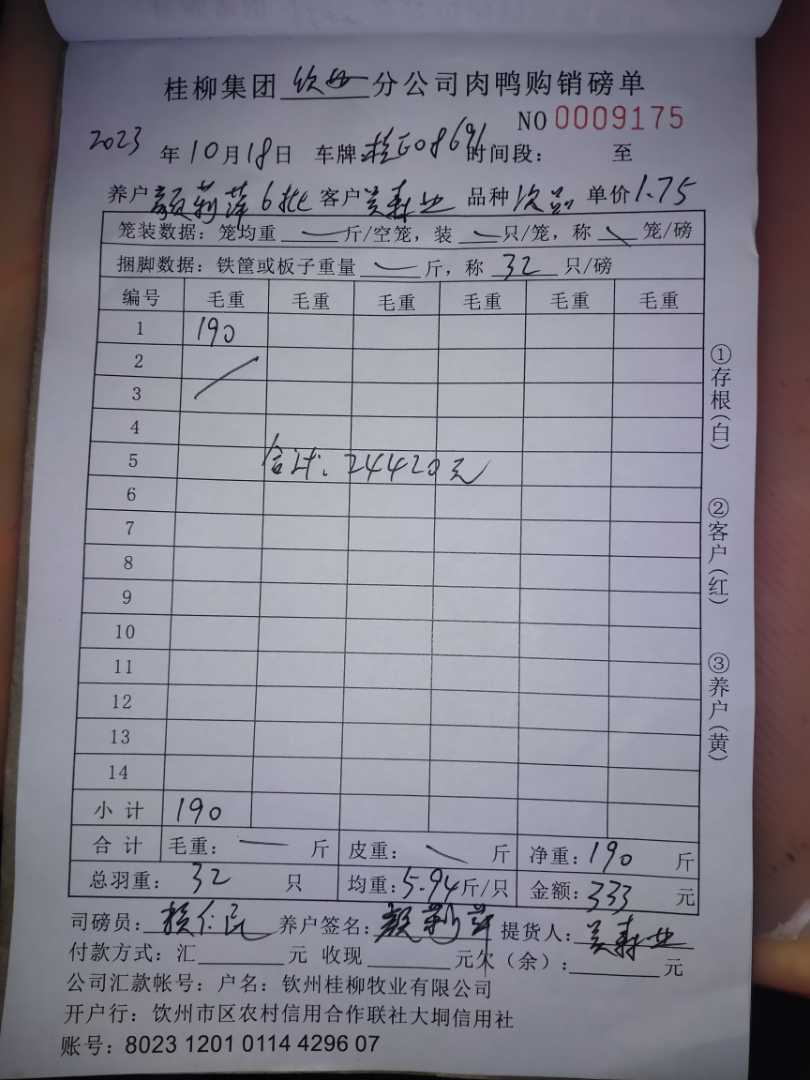 桂柳集团 钦州 分公司肉鸭购销磅单
NO 0009175
2023 年 10 月 18 日 车牌 桂E08691 时间段： 至
养户 颜莉萍 6批 客户 吴森业 品种 次品 单价 1.75
笼装数据：笼均重 — 斤/空笼，装 — 只/笼，称 — 笼/磅
捆脚数据：铁筐或板子重量 — 斤，称 32 只/磅
编号 毛重 毛重 毛重 毛重 毛重 毛重
1 190
2
3
4
5 合计：24420元
6
7
8
9
10
11
12
13
14
小计 190
合计 毛重：— 斤 皮重：— 斤 净重：190 斤
总羽重：32 只 均重：5.94 斤/只 金额：333 元
司磅员： 养户签名：颜莉萍 提货人：吴森业
付款方式：汇 元 收现 元欠（余）： 元
公司汇款帐号：户名：钦州桂柳牧业有限公司
开户行：钦州市区农村信用合作联社大垌信用社
账号：8023 1201 0114 4296 07
①存根（白）
②客户（红）
③养户（黄）